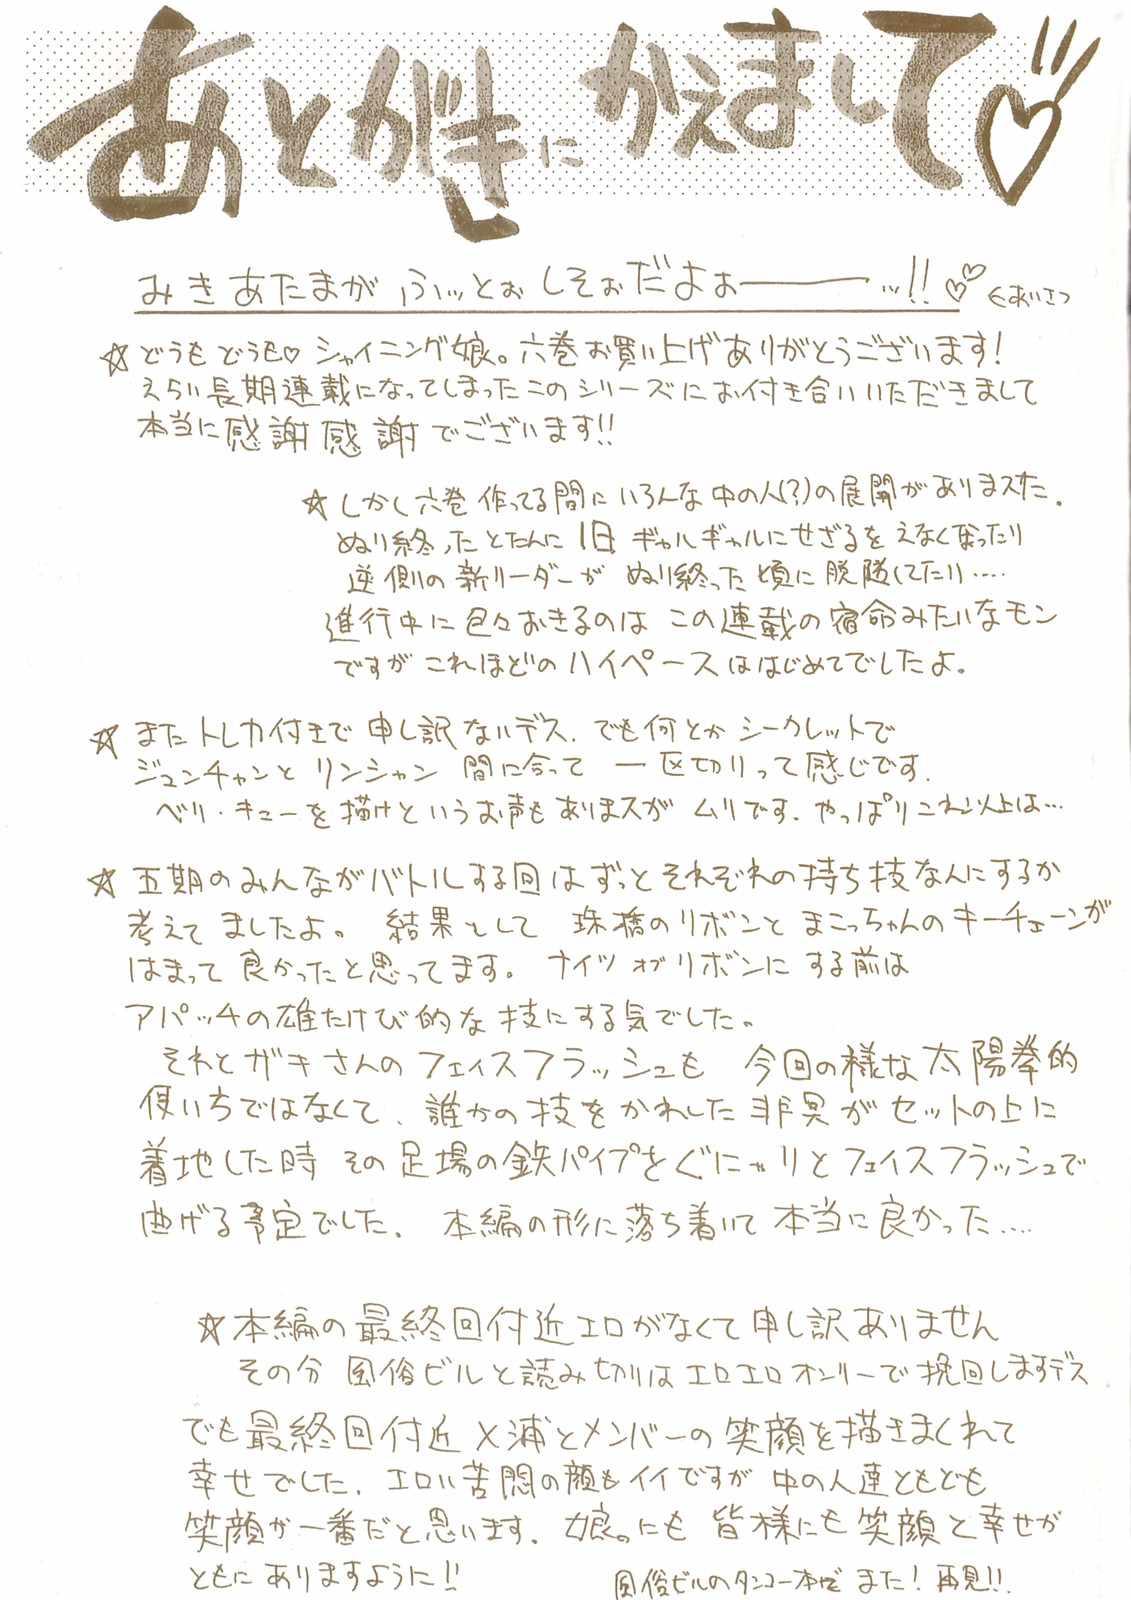 あとがきにかえまして♡
みきあたまがふぃっとぉしそぉだよぉー…!!♡♡ ←あいさつ
☆どうもどうも♡シャイニング娘。六巻お買い上げありがとうございます!
えらい長期連載になってしまったこのシリーズにお付き合いいただきまして
本当に感謝感謝でございます!!
☆しかし六巻作ってる間にいろんな中の人(?)の展開がありまスた.
ぬり終ったとたんに1日ギャルギャルにせざるをえなくなったり
逆側の新リーダーがぬり終った頃に脱隊してたり....
進行中に色々おきるのはこの連載の宿命みたいなモン
ですがこれほどのハイペースははじめてでしたよ。
☆またトレカ付きで申し訳ないデス. でも何とかシークレットで
ジュンチャンとリンシャン間に合って一区切りって感じです.
ベリ・キューを描けというお声もありまスがムリです. やっぱりこれ以上は…
☆五期のみんながバトルする回はずっとそれぞれの持ち技なんにするか
考えてましたよ。結果として珠橋のリボンとまこっちゃんのキーチェーンが
はまって良かったと思ってます。ナイツオブリボンにする前は
アパッチの雄たけび的な技にする気でした。
それとガキさんのフェイスフラッシュも今回の様な太陽拳的
使いちではなくて、誰かの技をかわした非冥がセットの上に
着地した時その足場の鉄パイプをぐにゃりとフェイスフラッシュで
曲げる予定でした. 本編の形に落ち着いて本当に良かった....
☆本編の最終回付近エロがなくて申し訳ありません
その分風俗ビルと読み切りはエロエロオンリーで挽回しますデス
でも最終回付近メ浦とメンバーの笑顔を描きまくれて
幸せでした. エロい苦悶の顔もイイですが中の人達ともども
笑顔が一番だと思います. 娘。にも皆様にも笑顔と幸せが
ともにありますように!!
風俗ビルのタンコー本でまた!再見!!.